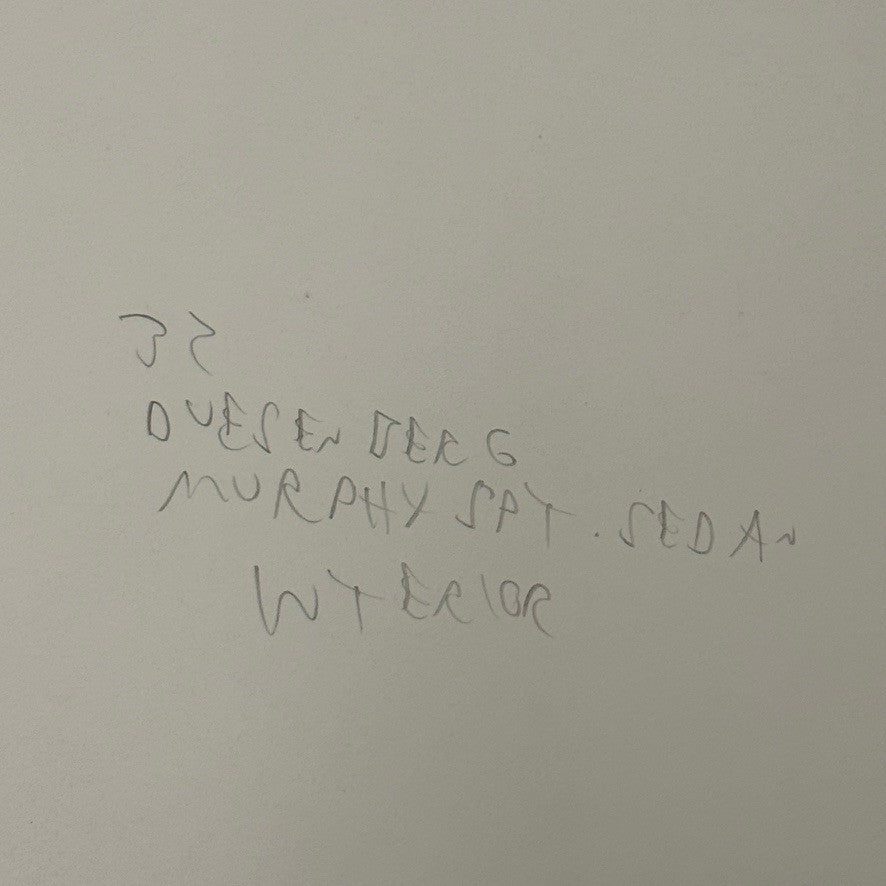 35
DUESENBERG
MURPHY SPT. SEDAN
INTERIOR